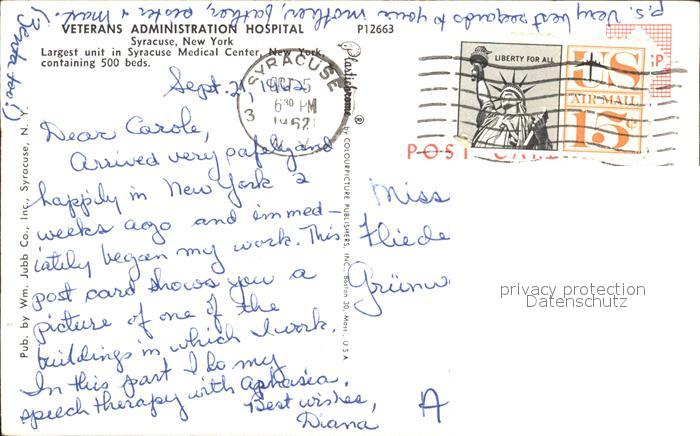 P.S. Very best regards to your mother, father, sister & Max.
(Benota too!)
VETERANS ADMINISTRATION HOSPITAL P12663
Syracuse, New York
Largest unit in Syracuse Medical Center, New York,
containing 500 beds.
Sept. 21, 1962
SYRACUSE
OCT 5
6 30 PM
1962
3
LIBERTY FOR ALL
US
AIR MAIL
15¢
POST CAR
Dear Carole,
Arrived very safely and
happily in New York 2
weeks ago and immed-
iately began my work. This
post card shows you a
picture of one of the
buildings in which I work.
In this part I do my
speech therapy with aphasia.
Best wishes,
Diana
Miss
Fliede
Grünw
A
Pub. by Wm. Jubb Co., Inc., Syracuse, N. Y.
Plastichrome ® by COLOURPICTURE PUBLISHERS, INC., Boston 30, Mass., U.S.A.
privacy protection
Datenschutz